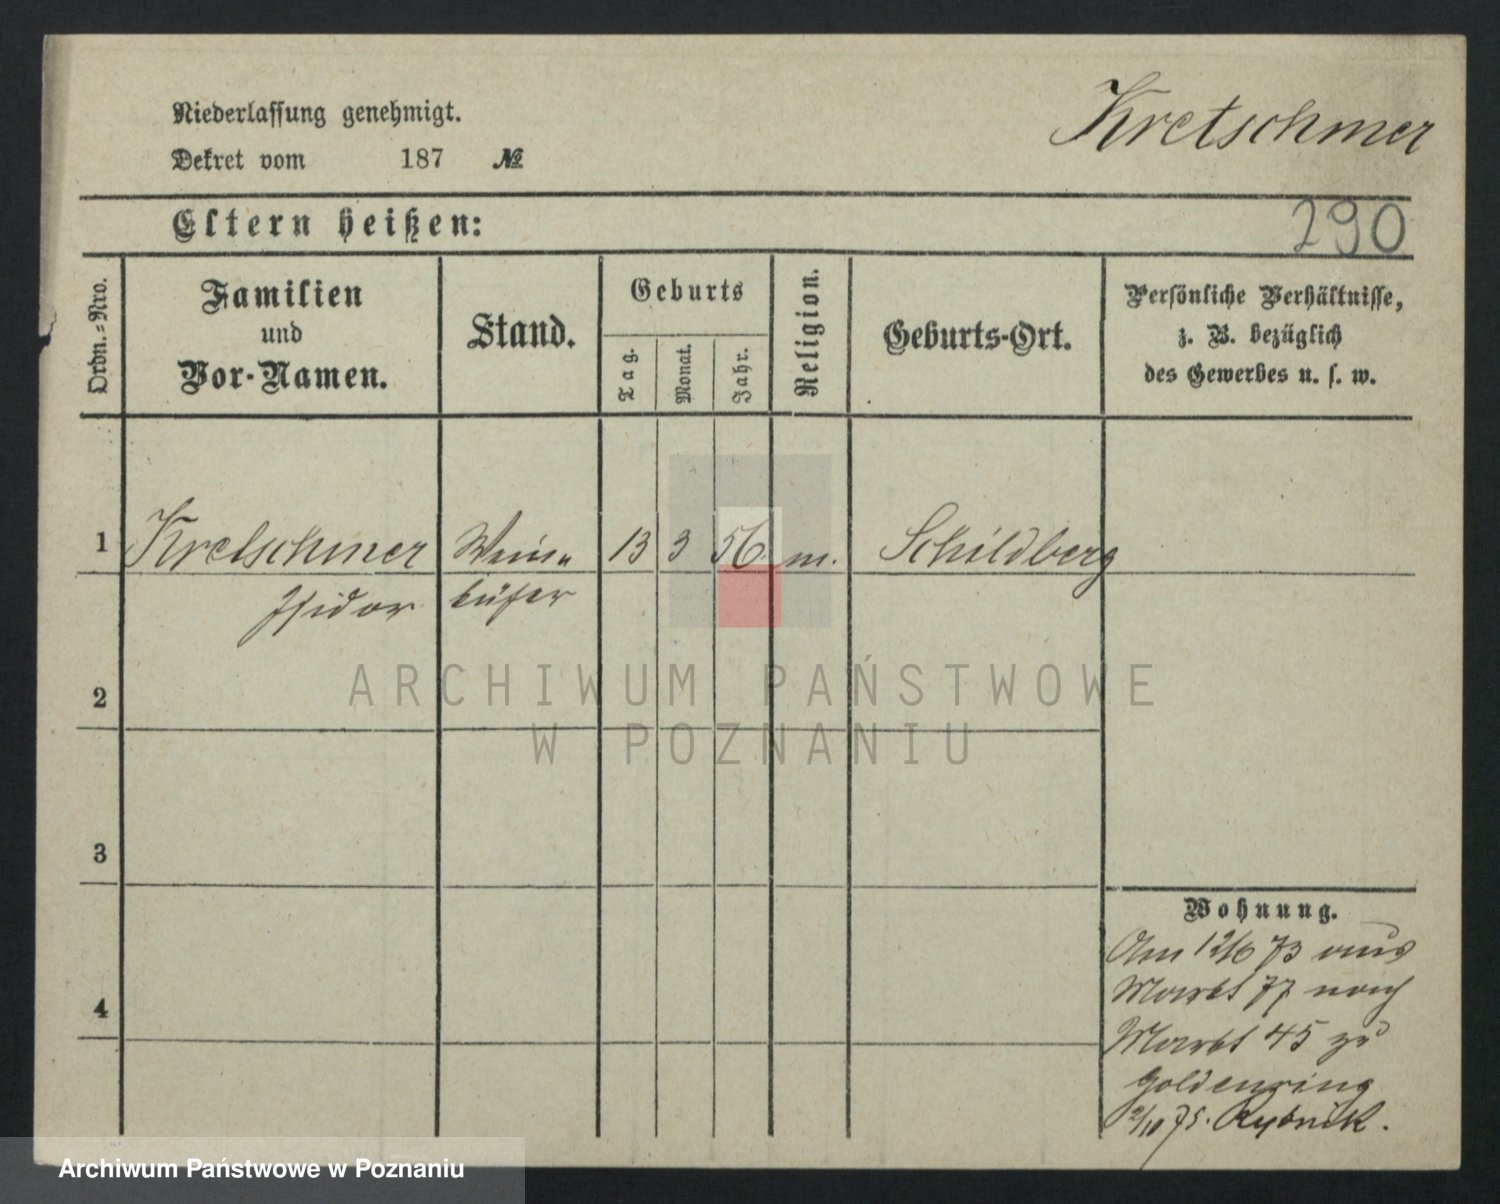 Kretschmer
Niederlassung genehmigt.
Dekret vom 187 №
Eltern heißen:
290
Ordn.-Nro.
Familien
und
Vor-Namen.
Stand.
Geburts
Tag.
Monat.
Jahr.
Religion.
Geburts-Ort.
Persönliche Verhältnisse,
z. B. bezüglich
des Gewerbes u. s. w.
1 Kretschmer 13 3 56 m. Schildberg
Isidor
2
3
4
Wohnung.
Am 12/6 73 aus
Markt 77 nach
Markt 45 zu
Goldenring
2/10 75. Rybnik.
ARCHIWUM PAŃSTWOWE
W POZNANIU
Archiwum Państwowe w Poznaniu